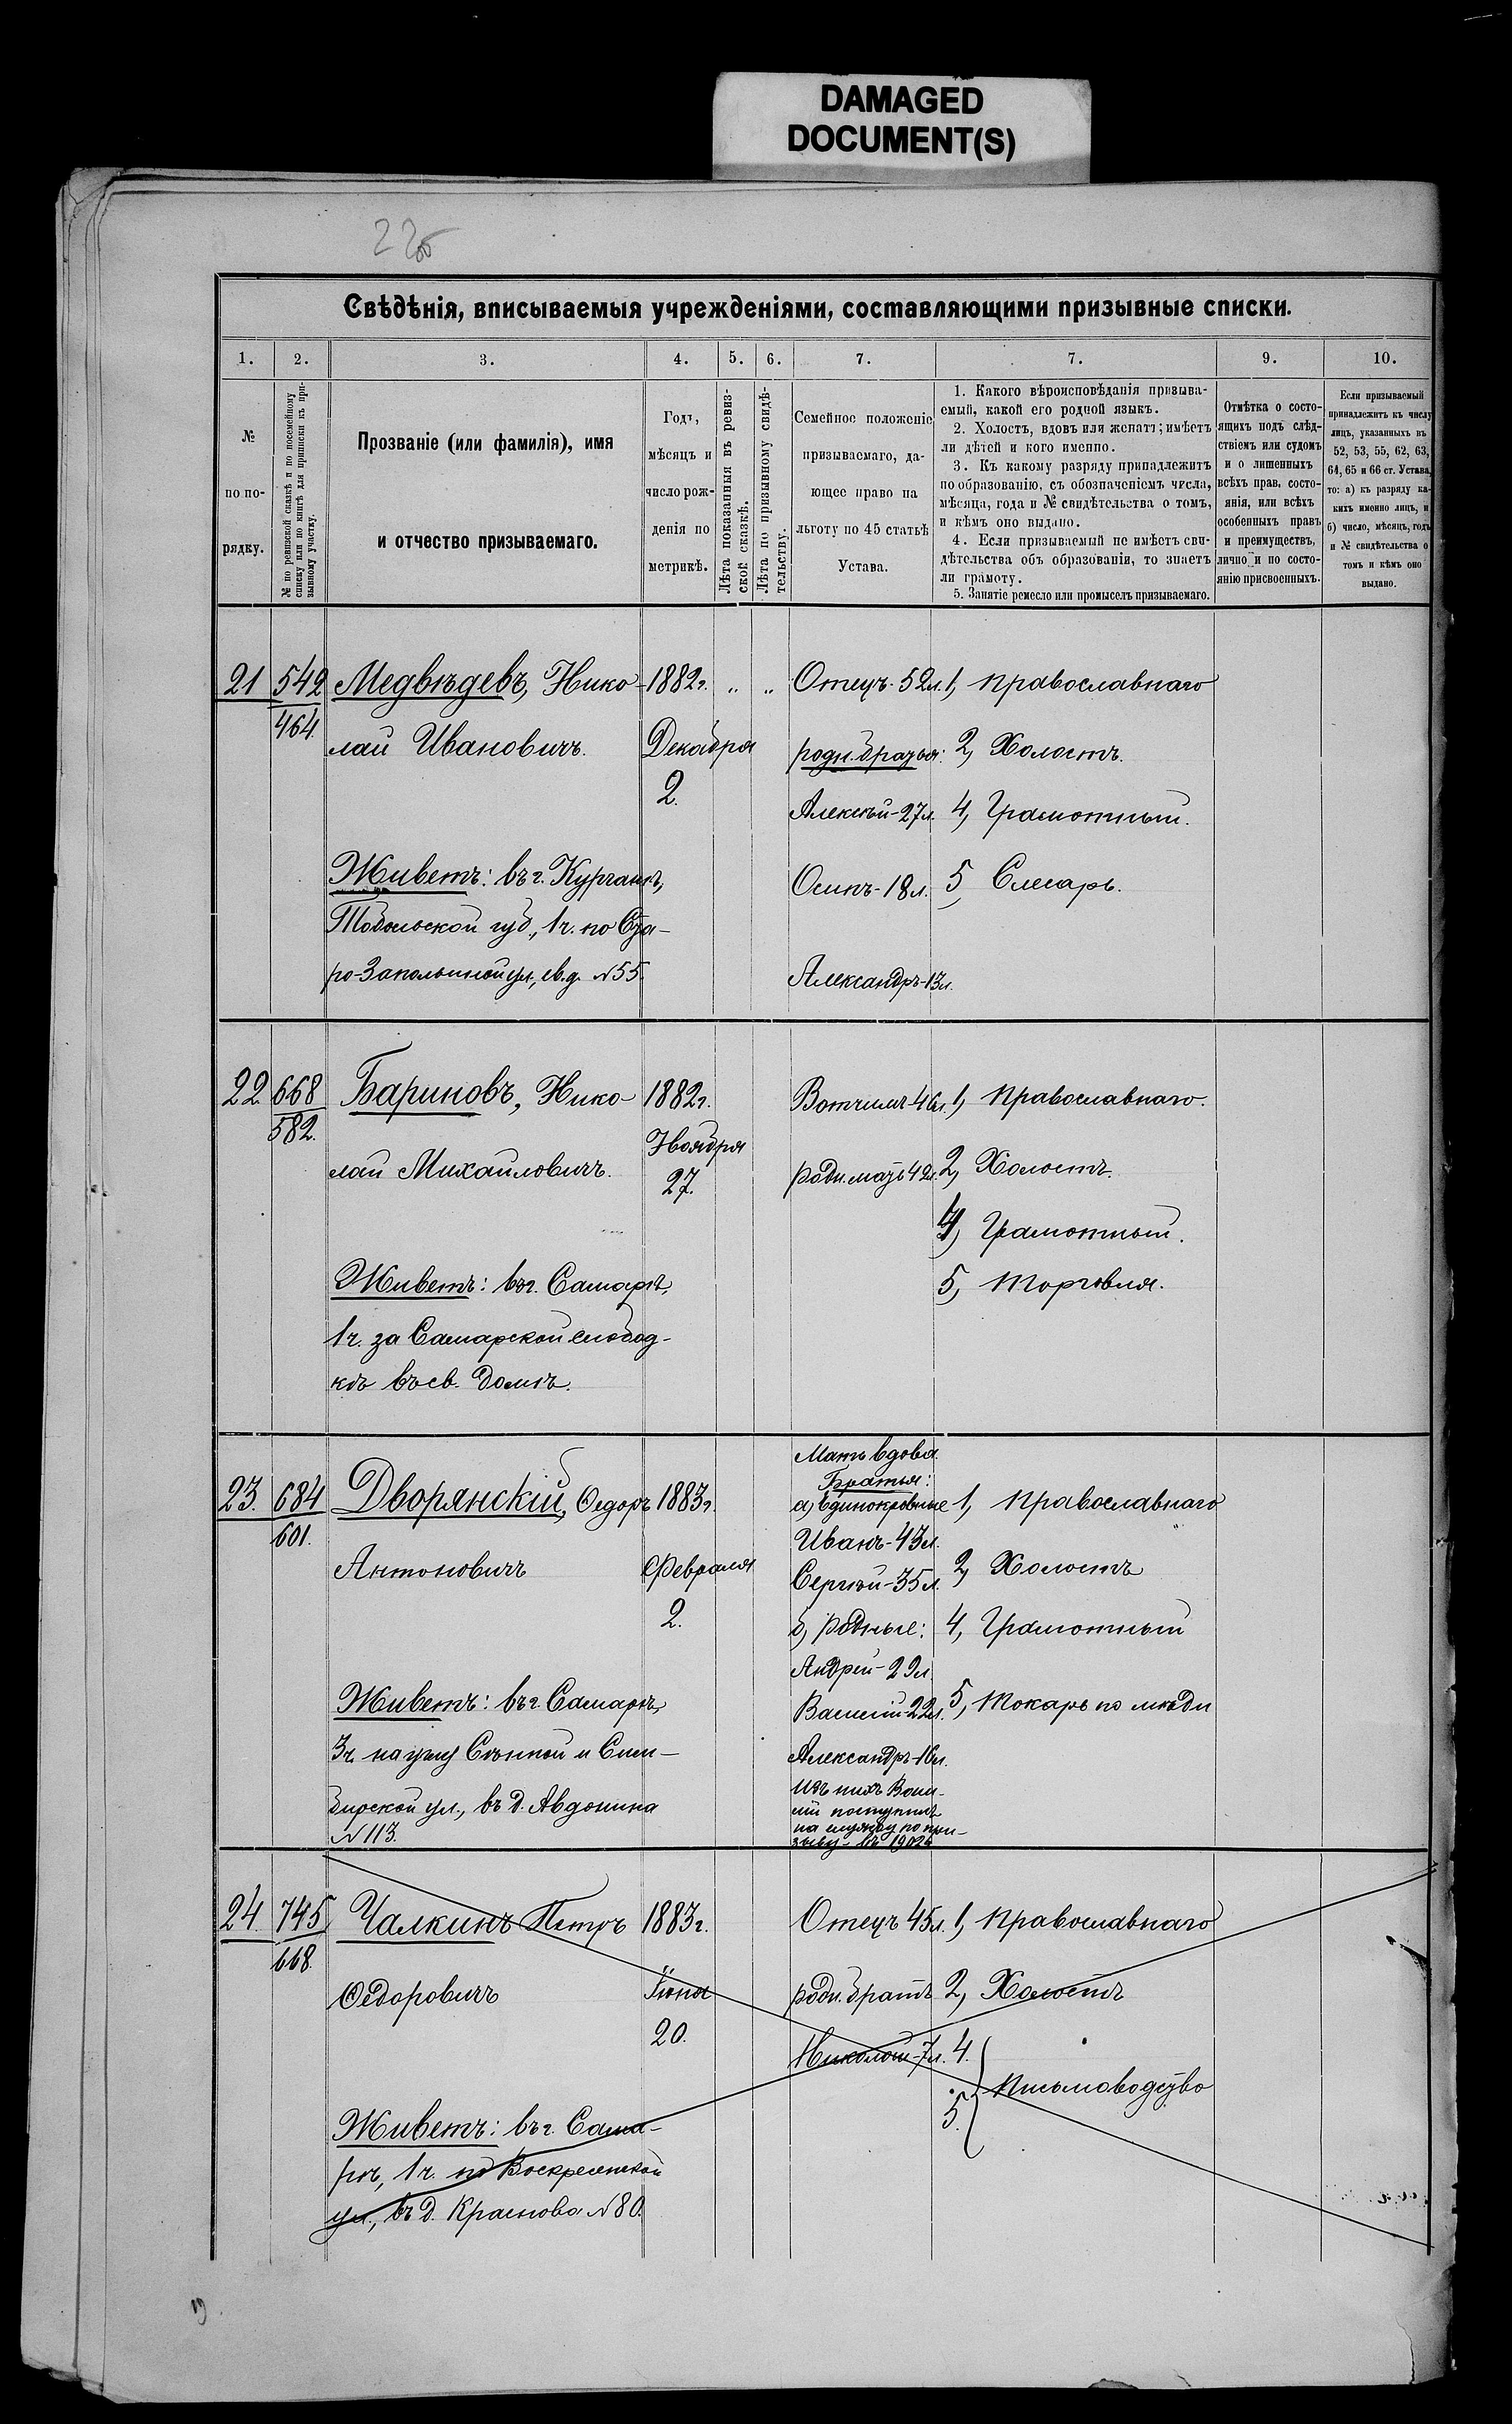 DAMAGED
DOCUMENT(S)
Свѣдѣнія, вписываемыя учрежденіями, составляющими призывные списки.
1. 2. 3. 4. 5. 6. 7. 7. 9. 10.
№
по по-
рядку.
№ по ревизской сказкѣ и по посемейному
списку или по книгѣ для приписки къ при-
зывному участку.
Прозваніе (или фамилія), имя
и отчество призываемаго.
Годъ,
мѣсяцъ и
число рож-
денія по
метрикѣ.
Лѣта показанныя въ ревиз-
ской сказкѣ.
Лѣта по призывному свидѣ-
тельству.
Семейное положеніе
призываемаго, да-
ющее право на
льготу по 45 статьѣ
Устава.
1. Какого вѣроисповѣданія призыва-
емый, какой его родной языкъ.
2. Холостъ, вдовъ или женатъ; имѣетъ
ли дѣтей и кого именно.
3. Къ какому разряду принадлежитъ
по образованію, съ обозначеніемъ числа,
мѣсяца, года и № свидѣтельства о томъ,
и кѣмъ оно выдано.
4. Если призываемый не имѣетъ сви-
дѣтельства объ образованіи, то знаетъ
ли грамоту.
5. Занятіе ремесло или промыселъ призываемаго.
Отмѣтка о состо-
ящихъ подъ слѣд-
ствіемъ или судомъ
и о лишенныхъ
всѣхъ прав, состо-
янія, или всѣхъ
особенныхъ правъ
и преимуществъ,
лично и по состо-
янію присвоенныхъ.
Если призываемый
принадлежитъ къ числу
лицъ, указанныхъ въ
52, 53, 55, 62, 63,
64, 65 и 66 ст. Устава,
то: а) къ разряду ка-
кихъ именно лицъ, и
б) число, мѣсяцъ, годъ
и № свидѣтельства о
томъ и кѣмъ оно
выдано.
21 542 Медвѣдевъ, Нико- 1882 г. „ „ Отецъ-52л. 1, Православнаго
464. лай Ивановичъ. Декабря родн. братья: 2, Холостъ.
2. Алексѣй-27л. 4, Грамотный.
Живетъ: въ г. Курганѣ, Осипъ-18л. 5, Слесарь.
Тобольской губ., 1ч. по Ста-
ро-Запольной ул., св. д. №55 Александръ-13л.
22 668 Бариновъ, Нико- 1882г. Вотчимъ 46л. 1, Православнаго.
582. Ноября
лай Михайловичъ. 27. родн. мать 42л. 2, Холостъ.
4, Грамотный.
Живетъ: въ г. Самарѣ, 5, Торговля.
1ч. за Самарской слобод-
кѣ въ св. домѣ.
Мать вдова.
Братья:
23. 684 Дворянскій, Ѳедоръ 1883г. а) единокровные 1, Православнаго
601. Иванъ-43л.
Антоновичъ Февраля Сергѣй-35л. 2, Холостъ
2. б) родные: 4, Грамотный
Андрей-29л.
Живетъ: въ г. Самарѣ, Василій-22л. 5, Токарь по мѣди
3ч. на углу Сѣнной и Сим- Александръ-16л.
бирской ул., въ д. Авдонина Изъ нихъ Васи-
№ 113. лій поступилъ
на службу по при-
зыву въ 1902г.
24. 745 Чалкинъ Петръ 1883г. Отецъ 45л. 1, Православнаго
668.
Ѳедоровичъ Іюня родн. братъ 2, Холостъ
20. Николай-7л. 4.
5. Письмоводство
Живетъ: въ г. Сама-
рѣ, 1ч. по Воскресенской
ул., въ д. Краснова №80.